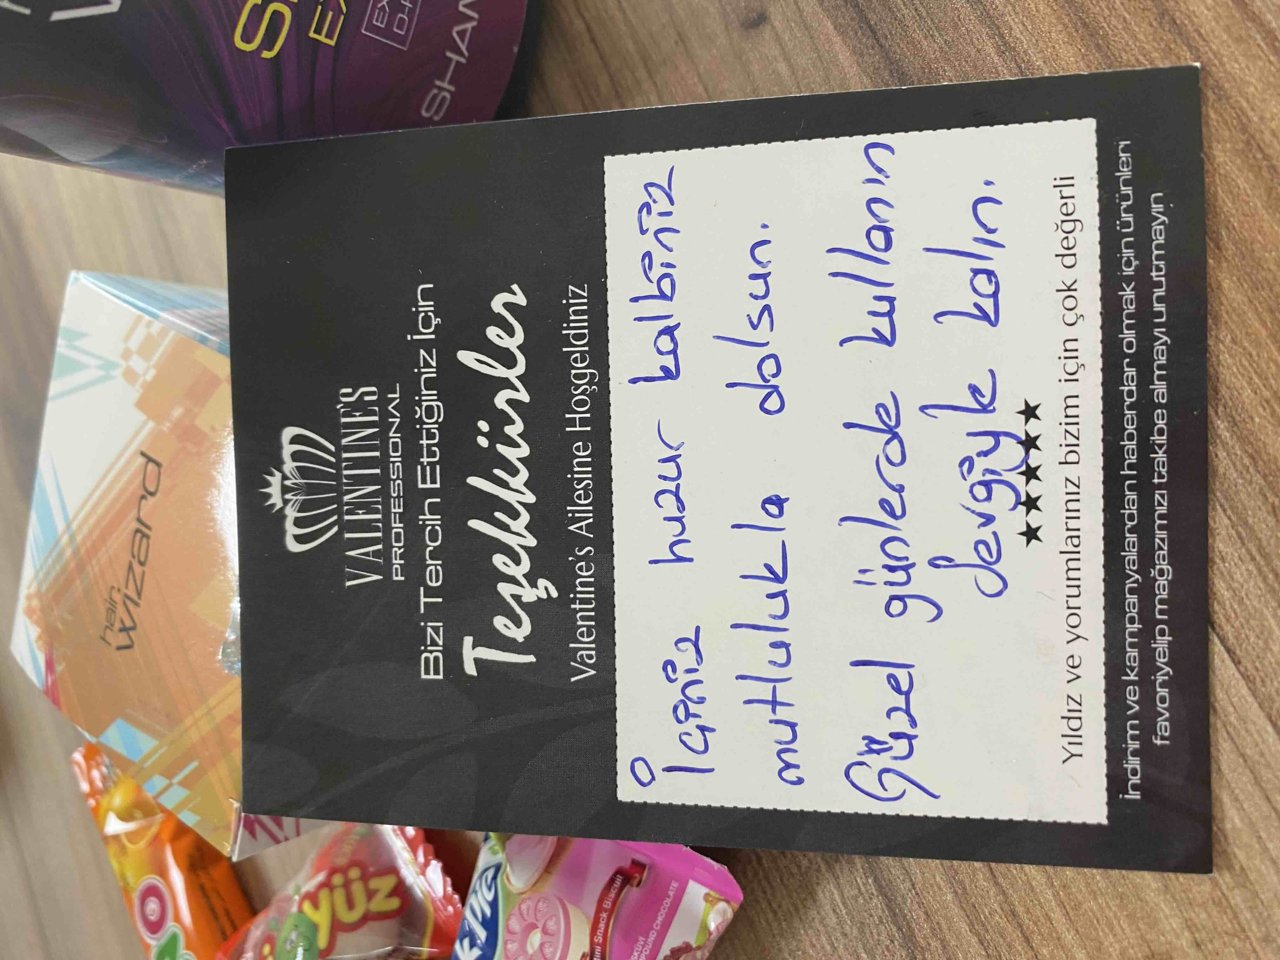 VALENTINE'S
PROFESSIONAL
Bizi Tercih Ettiğiniz İçin
Teşekkürler
Valentine's Ailesine Hoşgeldiniz
İçiniz huzur kalbiniz
mutlulukla dolsun.
Güzel günlerde kullanın
Sevgiyle kalın.
Yıldız ve yorumlarınız bizim için çok değerli
İndirim ve kampanyalardan haberdar olmak için ürünleri
favoriyelip mağazımızı takibe almayı unutmayın
hair
wizard
SHAM
yüz
Mini Snack Biscuit